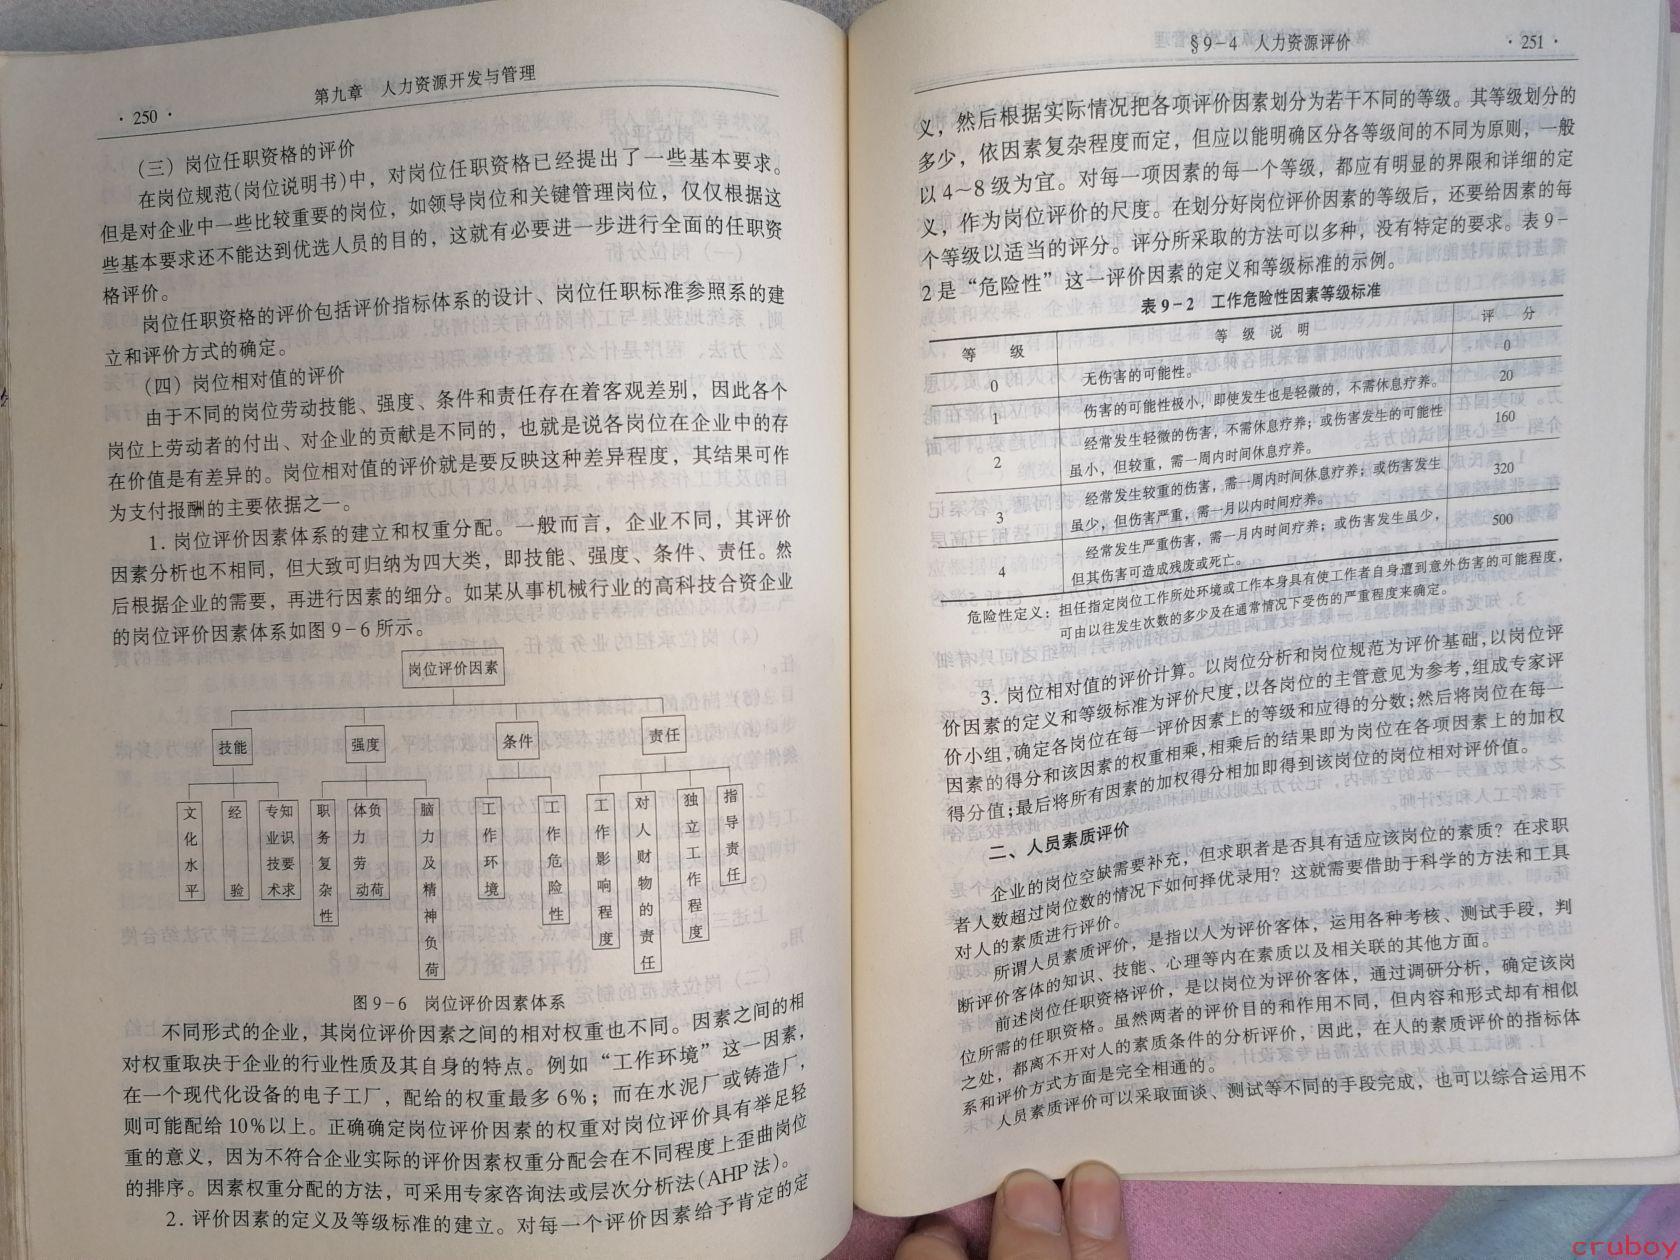 · 250 ·
第九章 人力资源开发与管理
(三) 岗位任职资格的评价
在岗位规范(岗位说明书)中，对岗位任职资格已经提出了一些基本要求。
但是对企业中一些比较重要的岗位，如领导岗位和关键管理岗位，仅仅根据这
些基本要求还不能达到优选人员的目的，这就有必要进一步进行全面的任职资
格评价。
岗位任职资格的评价包括评价指标体系的设计、岗位任职标准参照系的建
立和评价方式的确定。
(四) 岗位相对值的评价
由于不同的岗位劳动技能、强度、条件和责任存在着客观差别，因此各个
岗位上劳动者的付出、对企业的贡献是不同的，也就是说各岗位在企业中的存
在价值是有差异的。岗位相对值的评价就是要反映这种差异程度，其结果可作
为支付报酬的主要依据之一。
1. 岗位评价因素体系的建立和权重分配。一般而言，企业不同，其评价
因素分析也不相同，但大致可归纳为四大类，即技能、强度、条件、责任。然
后根据企业的需要，再进行因素的细分。如某从事机械行业的高科技合资企业
的岗位评价因素体系如图 9-6 所示。
岗位评价因素
技能 强度 条件 责任
文化水平
经验
专业技术知识要求
职务复杂性
体力劳动负荷
脑力及精神负荷
工作环境
工作危险性
工作影响程度
对人财物的责任
独立工作程度
指导责任
图 9-6 岗位评价因素体系
不同形式的企业，其岗位评价因素之间的相对权重也不同。因素之间的相
对权重取决于企业的行业性质及其自身的特点。例如“工作环境”这一因素，
在一个现代化设备的电子工厂，配给的权重最多 6%；而在水泥厂或铸造厂，
则可能配给 10% 以上。正确确定岗位评价因素的权重对岗位评价具有举足轻
重的意义，因为不符合企业实际的评价因素权重分配会在不同程度上歪曲岗位
的排序。因素权重分配的方法，可采用专家咨询法或层次分析法(AHP 法)。
2. 评价因素的定义及等级标准的建立。对每一个评价因素给予肯定的定
§9-4 人力资源评价
· 251 ·
义，然后根据实际情况把各项评价因素划分为若干不同的等级。其等级划分的
多少，依因素复杂程度而定，但应以能明确区分各等级间的不同为原则，一般
以 4~8 级为宜。对每一项因素的每一个等级，都应有明显的界限和详细的定
义，作为岗位评价的尺度。在划分好岗位评价因素的等级后，还要给因素的每
个等级以适当的评分。评分所采取的方法可以多种，没有特定的要求。表 9-
2 是“危险性”这一评价因素的定义和等级标准的示例。
表 9-2 工作危险性因素等级标准
等 级 等 级 说 明 评 分
0 无伤害的可能性。 0
1 伤害的可能性极小，即使发生也是轻微的，不需休息疗养。 20
2 经常发生轻微的伤害，不需休息疗养；或伤害发生的可能性 160
虽小，但较重，需一周内时间休息疗养。
3 经常发生较重的伤害，需一周内时间休息疗养；或伤害发生 320
虽少，但伤害严重，需一月以内时间疗养。
4 经常发生严重伤害，需一月内时间疗养；或伤害发生虽少， 500
但其伤害可造成残废或死亡。
危险性定义：担任指定岗位工作所处环境或工作本身具有使工作者自身遭到意外伤害的可能程度，
可由以往发生次数的多少及在通常情况下受伤的严重程度来确定。
3. 岗位相对值的评价计算。以岗位分析和岗位规范为评价基础，以岗位评
价因素的定义和等级标准为评价尺度，以各岗位的主管意见为参考，组成专家评
价小组，确定各岗位在每一评价因素上的等级和应得的分数；然后将岗位在每一
因素的得分和该因素的权重相乘，相乘后的结果即为岗位在各项因素上的加权
得分值；最后将所有因素的加权得分相加即得到该岗位的岗位相对评价值。
二、人员素质评价
企业的岗位空缺需要补充，但求职者是否具有适应该岗位的素质？在求职
者人数超过岗位数的情况下如何择优录用？这就需要借助于科学的方法和工具
对人的素质进行评价。
所谓人员素质评价，是指以人为评价客体，运用各种考核、测试手段，判
断评价客体的知识、技能、心理等内在素质以及相关联的其他方面。
前述岗位任职资格评价，是以岗位为评价客体，通过调研分析，确定该岗
位所需的任职资格。虽然两者的评价目的和作用不同，但内容和形式却有相似
之处，都离不开对人的素质条件的分析评价，因此，在人的素质评价的指标体
系和评价方式方面是完全相通的。
人员素质评价可以采取面谈、测试等不同的手段完成，也可以综合运用不
cruboy